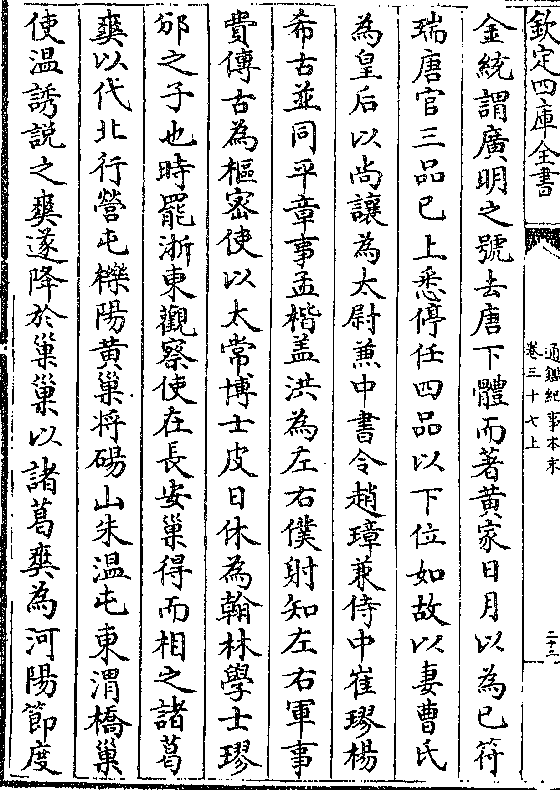 欽定四庫全書
通鑑紀事本末
卷三十七上
二十三
金統謂廣明之號去唐下體而著黄家日月以為已符
瑞唐官三品已上悉停任四品以下位如故以妻曹氏
為皇后以尚讓為太尉兼中書令趙璋兼侍中崔璆楊
希古並同平章事孟楷盖洪為左右僕射知左右軍事
費傳古為樞密使以太常博士皮日休為翰林學士璆
邠之子也時罷浙東觀察使在長安巢得而相之諸葛
爽以代北行營屯櫟陽黄巢将碭山朱温屯東渭橋巢
使温誘説之爽遂降於巢巢以諸葛爽為河陽節度